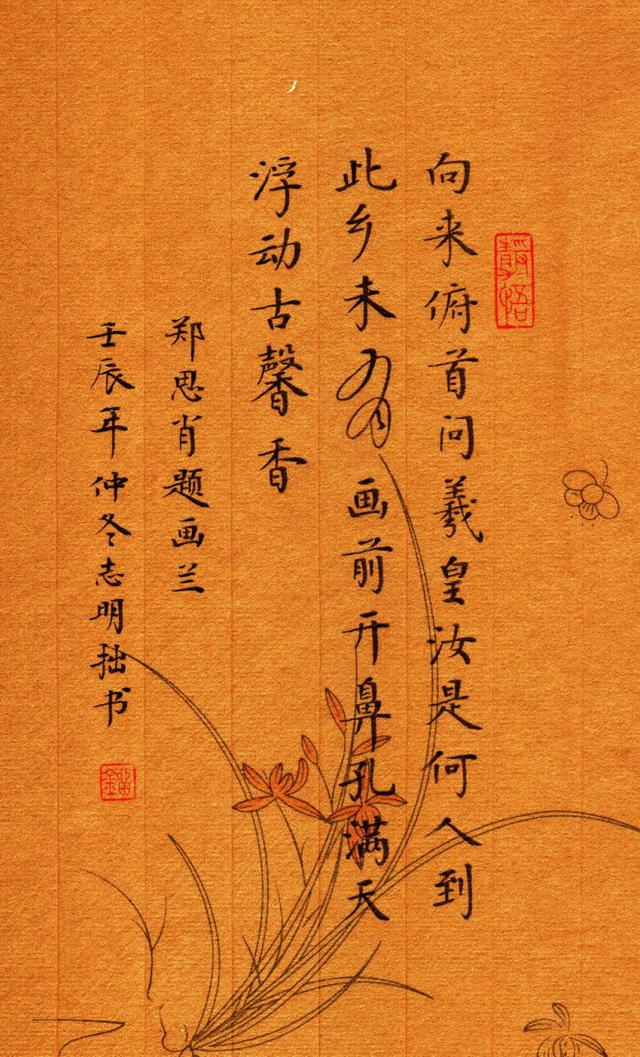 靜悟
向来俯首问羲皇汝是何人到
此乡未有画前开鼻孔满天
浮动古馨香
郑思肖题画兰
壬辰年仲冬志明拙书